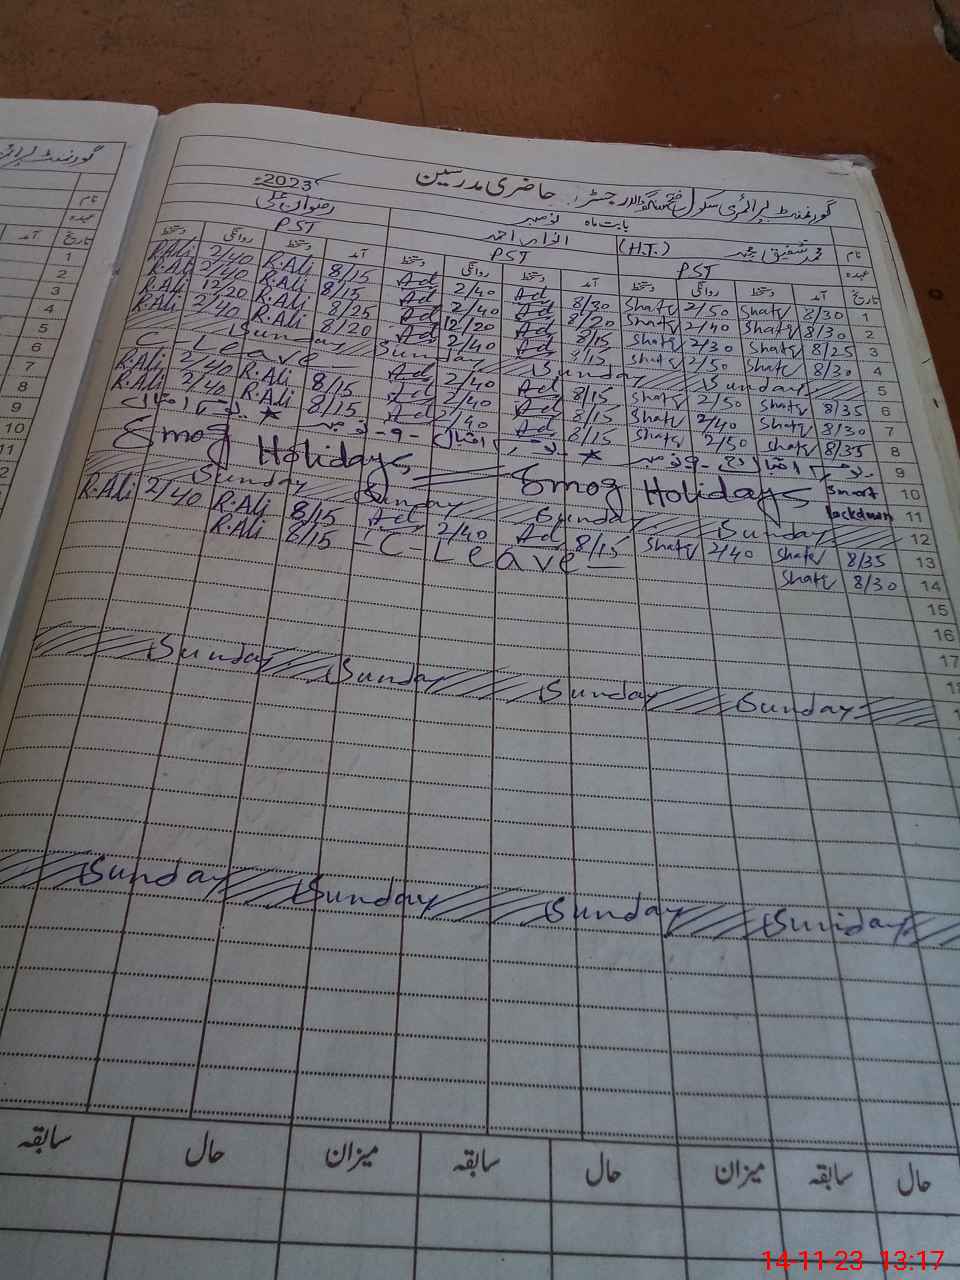 گورنمنٹ پرائمری سکول رجسٹر حاضری مدرسین
بابت ماہ نومبر 2023ء
نام محمد شفیق (H.T.) رضوان علی
عہدہ PST PST PST
تاریخ آمد دستخط روانگی دستخط آمد دستخط روانگی دستخط آمد دستخط روانگی دستخط
1 8/30 Shafq 2/50 Shafq 8/30 Ad 2/40 Ad 8/15 R.Ali 2/40 R.Ali
2 8/30 Shafq 2/40 Shafq 8/20 Ad 2/40 Ad 8/15 R.Ali 2/40 R.Ali
3 8/25 Shafq 2/30 Shafq 8/15 Ad 12/20 Ad 8/25 R.Ali 12/20 R.Ali
4 8/30 Shafq 2/50 Shafq 8/15 Ad 2/40 Ad 8/20 R.Ali 2/40 R.Ali
5 Sunday Sunday Sunday Sunday
6 8/35 Shafq 2/50 Shafq 8/15 Ad 2/40 Ad C-Leave
7 8/30 Shafq 2/40 Shafq 8/15 Ad 2/40 Ad 8/15 R.Ali 2/40 R.Ali
8 8/35 Shafq 2/50 Shafq 8/15 Ad 2/40 Ad 8/15 R.Ali 2/40 R.Ali
9 یوم اقبال 9 نومبر یوم اقبال 9 نومبر
10 Smog Holidays Smog Holidays Smart
11 lockdown
12 Sunday Sunday Sunday Sunday
13 8/35 Shafq 2/40 Shafq 8/15 Ad 2/40 Ad 8/15 R.Ali 2/40 R.Ali
14 8/30 Shafq C-Leave 8/15 R.Ali
15
16
17
Sunday Sunday Sunday Sunday
Sunday Sunday Sunday Sunday
حال سابقہ میزان حال سابقہ میزان حال سابقہ
14-11-23 13:17